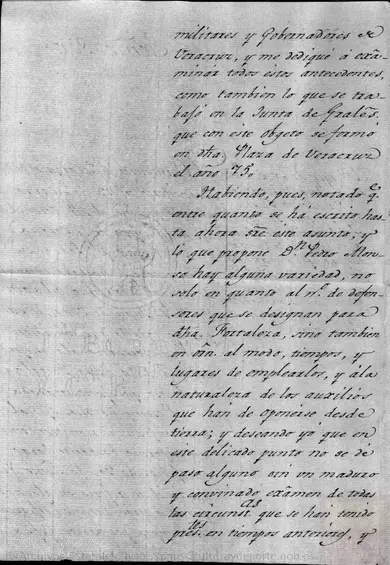 militares y Gobernadores de
Veracruz, y me dediqué á exâ-
minar todos estos antecedentes,
como tambien lo que se tra-
bajó en la Junta de Grales.
que con este objeto se formó
en dha. Plaza de Veracruz
el año 75.
Habiendo, pues, notado q.e
entre quanto se há escrito has-
ta ahora sre. este asunto, y
lo que propone D.n Pedro
hay alguna variedad, no
solo en quanto al n.o de defen-
sores que se designan para
dha. Fortaleza, sino tambien
en orn. al modo, tiempos, y
lugares de emplearlos, y á la
naturaleza de los auxilios
que han de oponerse desde
tierra; y deseando yo que en
este delicado punto no se dé
paso alguno sin un maduro
y convinado exâmen de todas
las circunst.as que se han tenido
pres.tes en tiempos anteriores, y